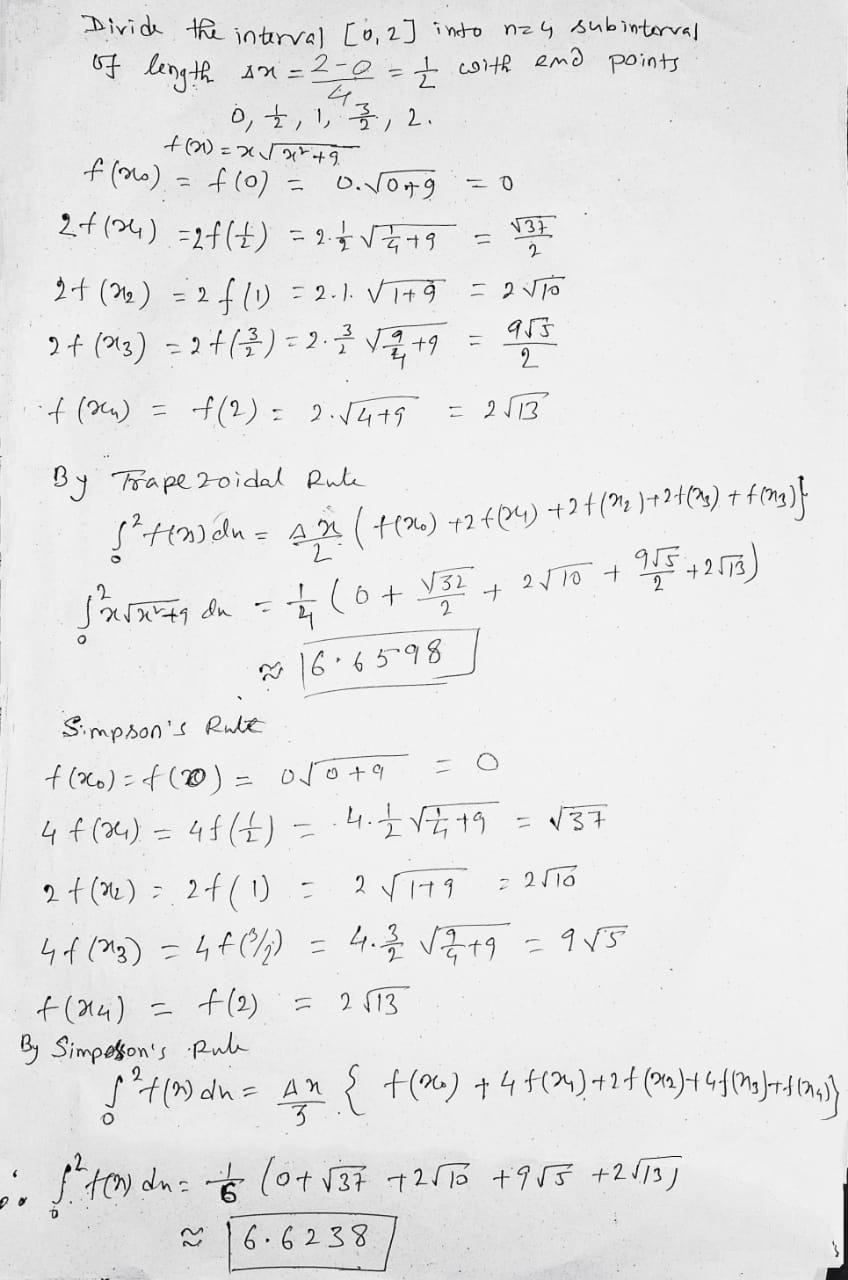 Divide the interval [0,2] into n=4 subinterval
of length Δx = 2-0/4 = 1/2 with end points
0, 1/2, 1, 3/2, 2.
f(x) = x√x²+9
f(x₀) = f(0) = 0.√0+9 = 0
2f(x₁) = 2f(1/2) = 2.1/2 √1/4+9 = √37/2
2f(x₂) = 2f(1) = 2.1. √1+9 = 2√10
2f(x₃) = 2f(3/2) = 2.3/2 √9/4+9 = 9√5/2
f(x₄) = f(2) = 2.√4+9 = 2√13
By Trapezoidal Rule
∫₀² f(x) dx = Δx/2 (f(x₀) +2f(x₁) +2f(x₂)+2f(x₃) + f(x₃)}
∫₀² x√x²+9 dx = 1/4 (0 + √32/2 + 2√10 + 9√5/2 + 2√13)
≈ 6.6598
Simpson's Rule
f(x₀) = f(0) = 0√0+9 = 0
4f(x₁) = 4f(1/2) = 4.1/2 √1/4+9 = √37
2f(x₂) = 2f(1) = 2√1+9 = 2√10
4f(x₃) = 4f(3/2) = 4.3/2 √9/4+9 = 9√5
f(x₄) = f(2) = 2√13
By Simpson's Rule
∫₀² f(x) dx = Δx/3 { f(x₀) + 4f(x₁)+2f(x₂)+4f(x₃)+f(x₄)}
∴ ∫₀² f(x) dx = 1/6 (0+√37 +2√10 +9√5 +2√13)
≈ 6.6238